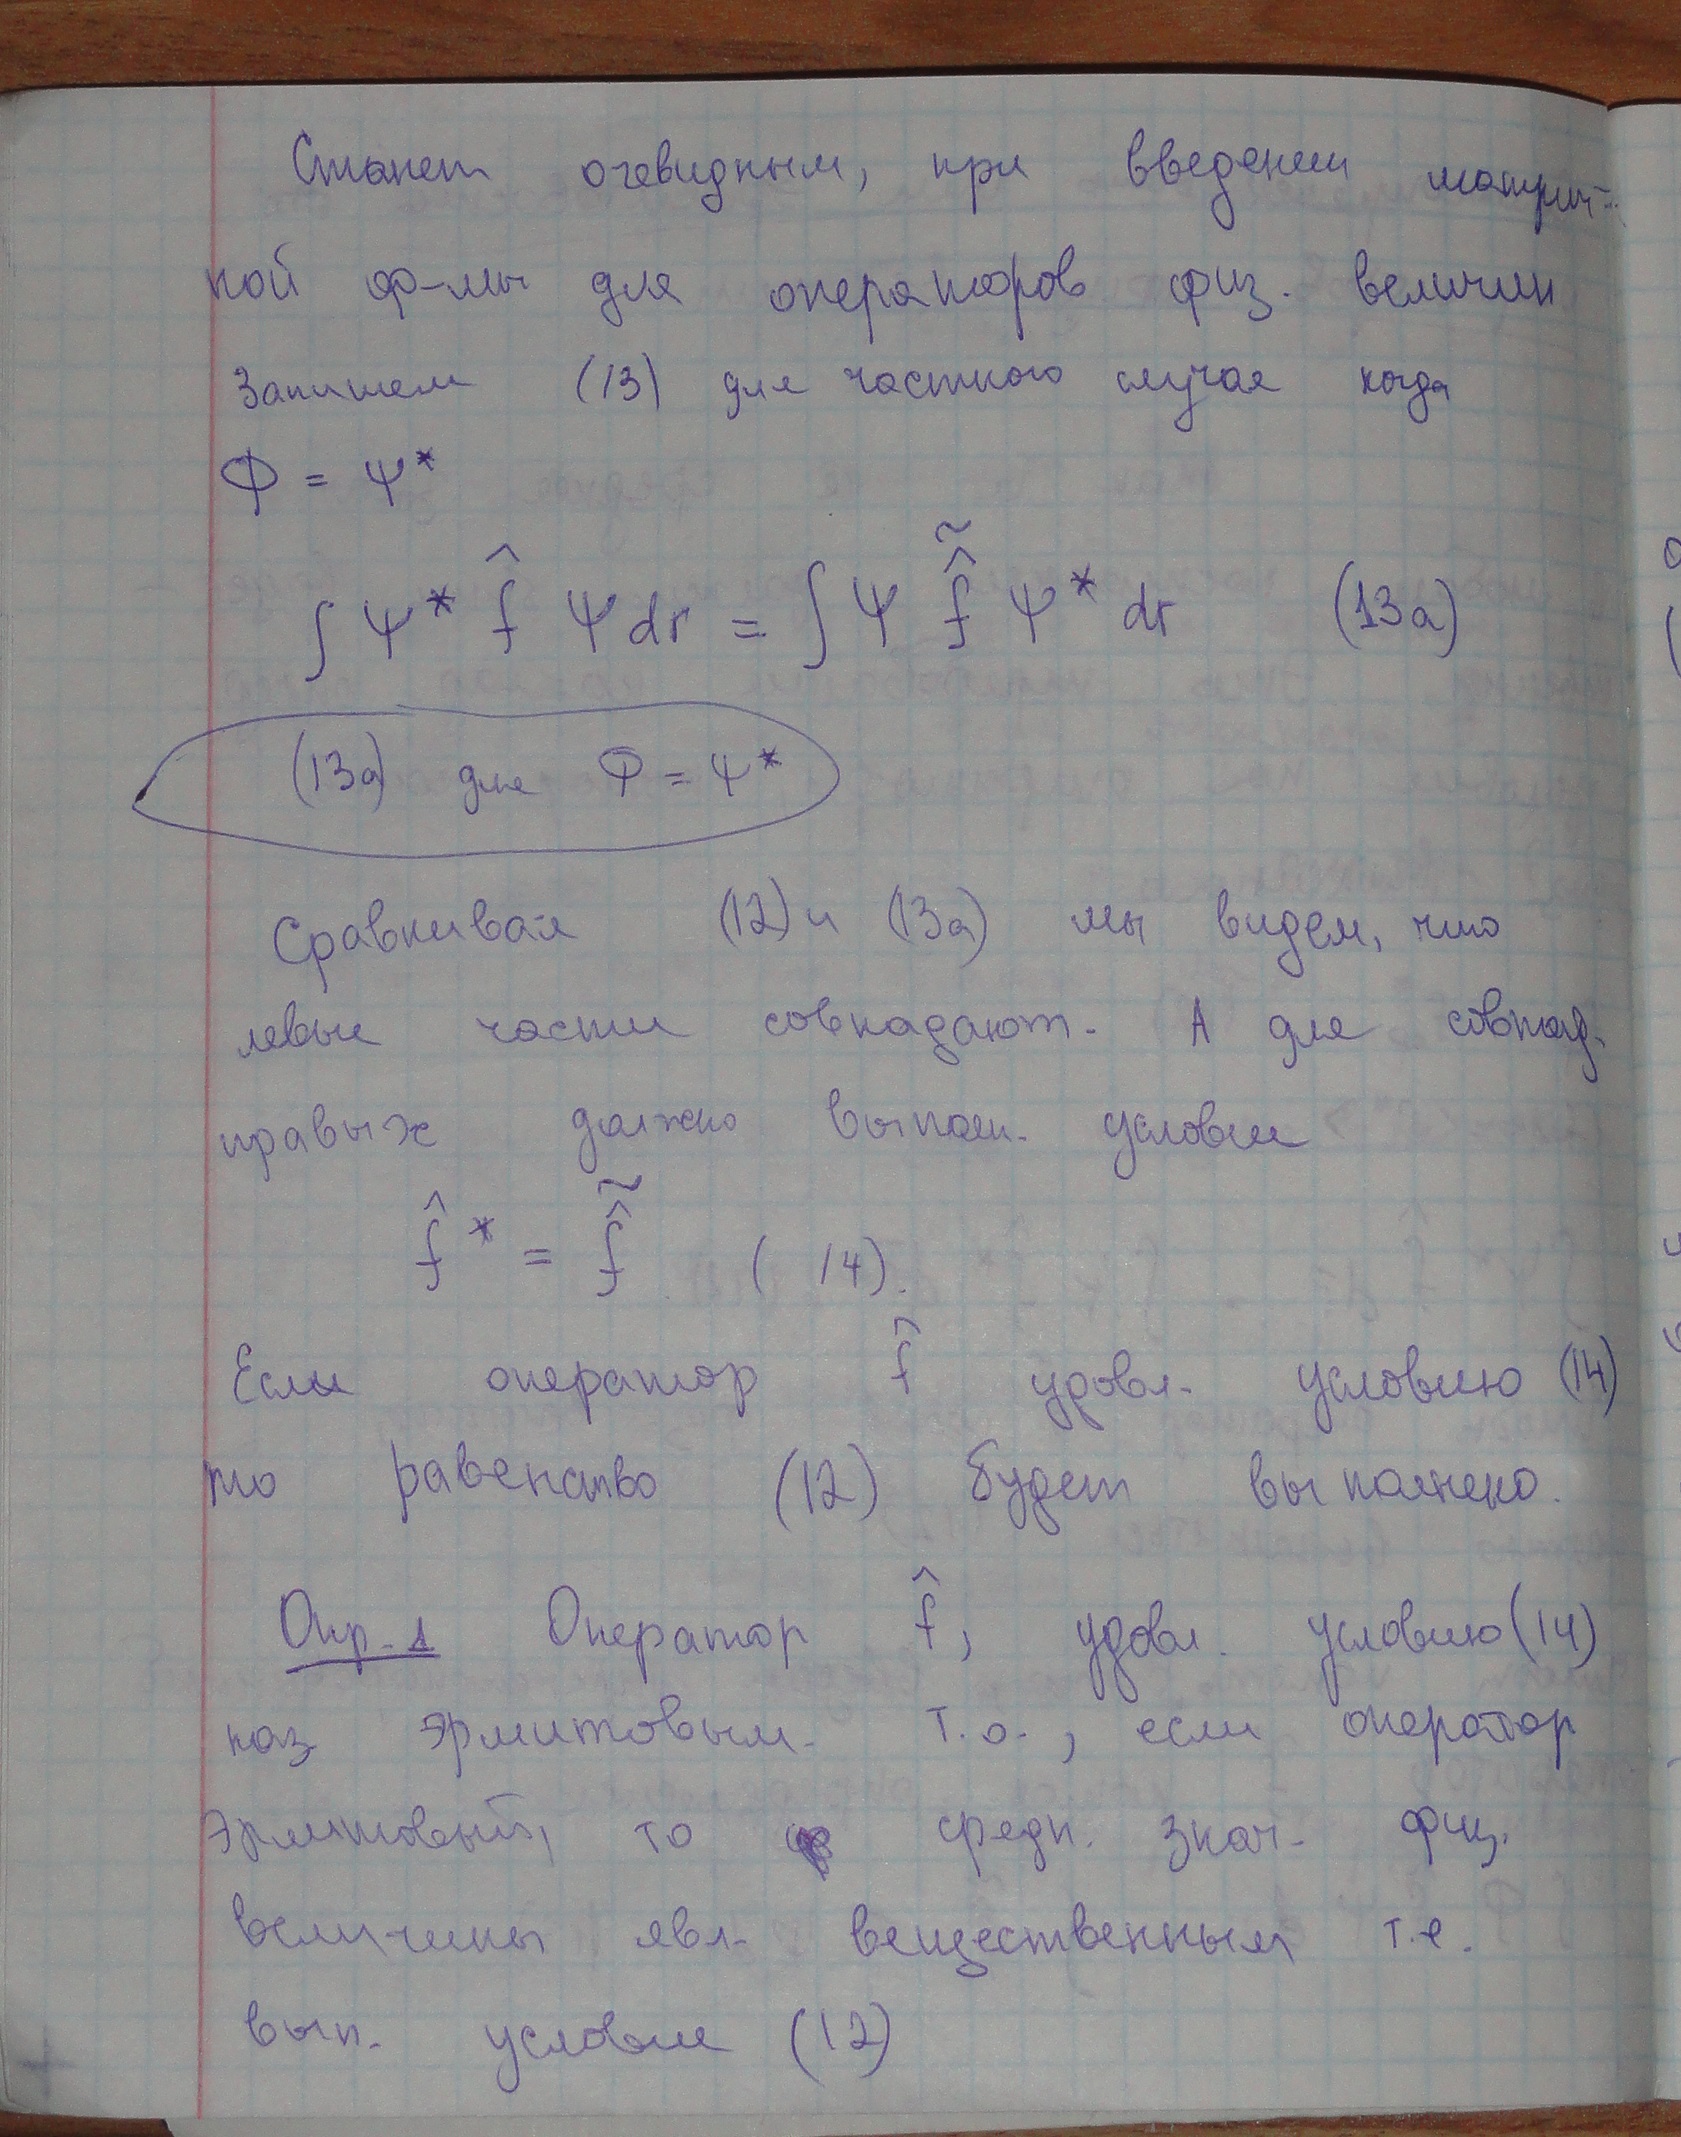 Станет очевидным, при введении матрич-
ной ф-мы для операторов физ. величин
Запишем (13) для частного случая когда
Φ = Ψ*
∫ Ψ* f̂ Ψ dr = ∫ Ψ f̂̃ Ψ* dr (13а)
(13а) для Φ = Ψ*
Сравнивая (12) и (13а) мы видем, что
левые части совпадают. А для совпад.
правых должно выполн. условие
f̂* = f̂̃ (14).
Если оператор f̂ удовл. условию (14)
то равенство (12) будет выполнено.
Опр. 1 Оператор f̂, удовл. условию (14)
наз эрмитовым. Т.о., если оператор
эрмитовый, то средн. знач. физ.
величины явл. вещественным т.е.
вып. условие (12)